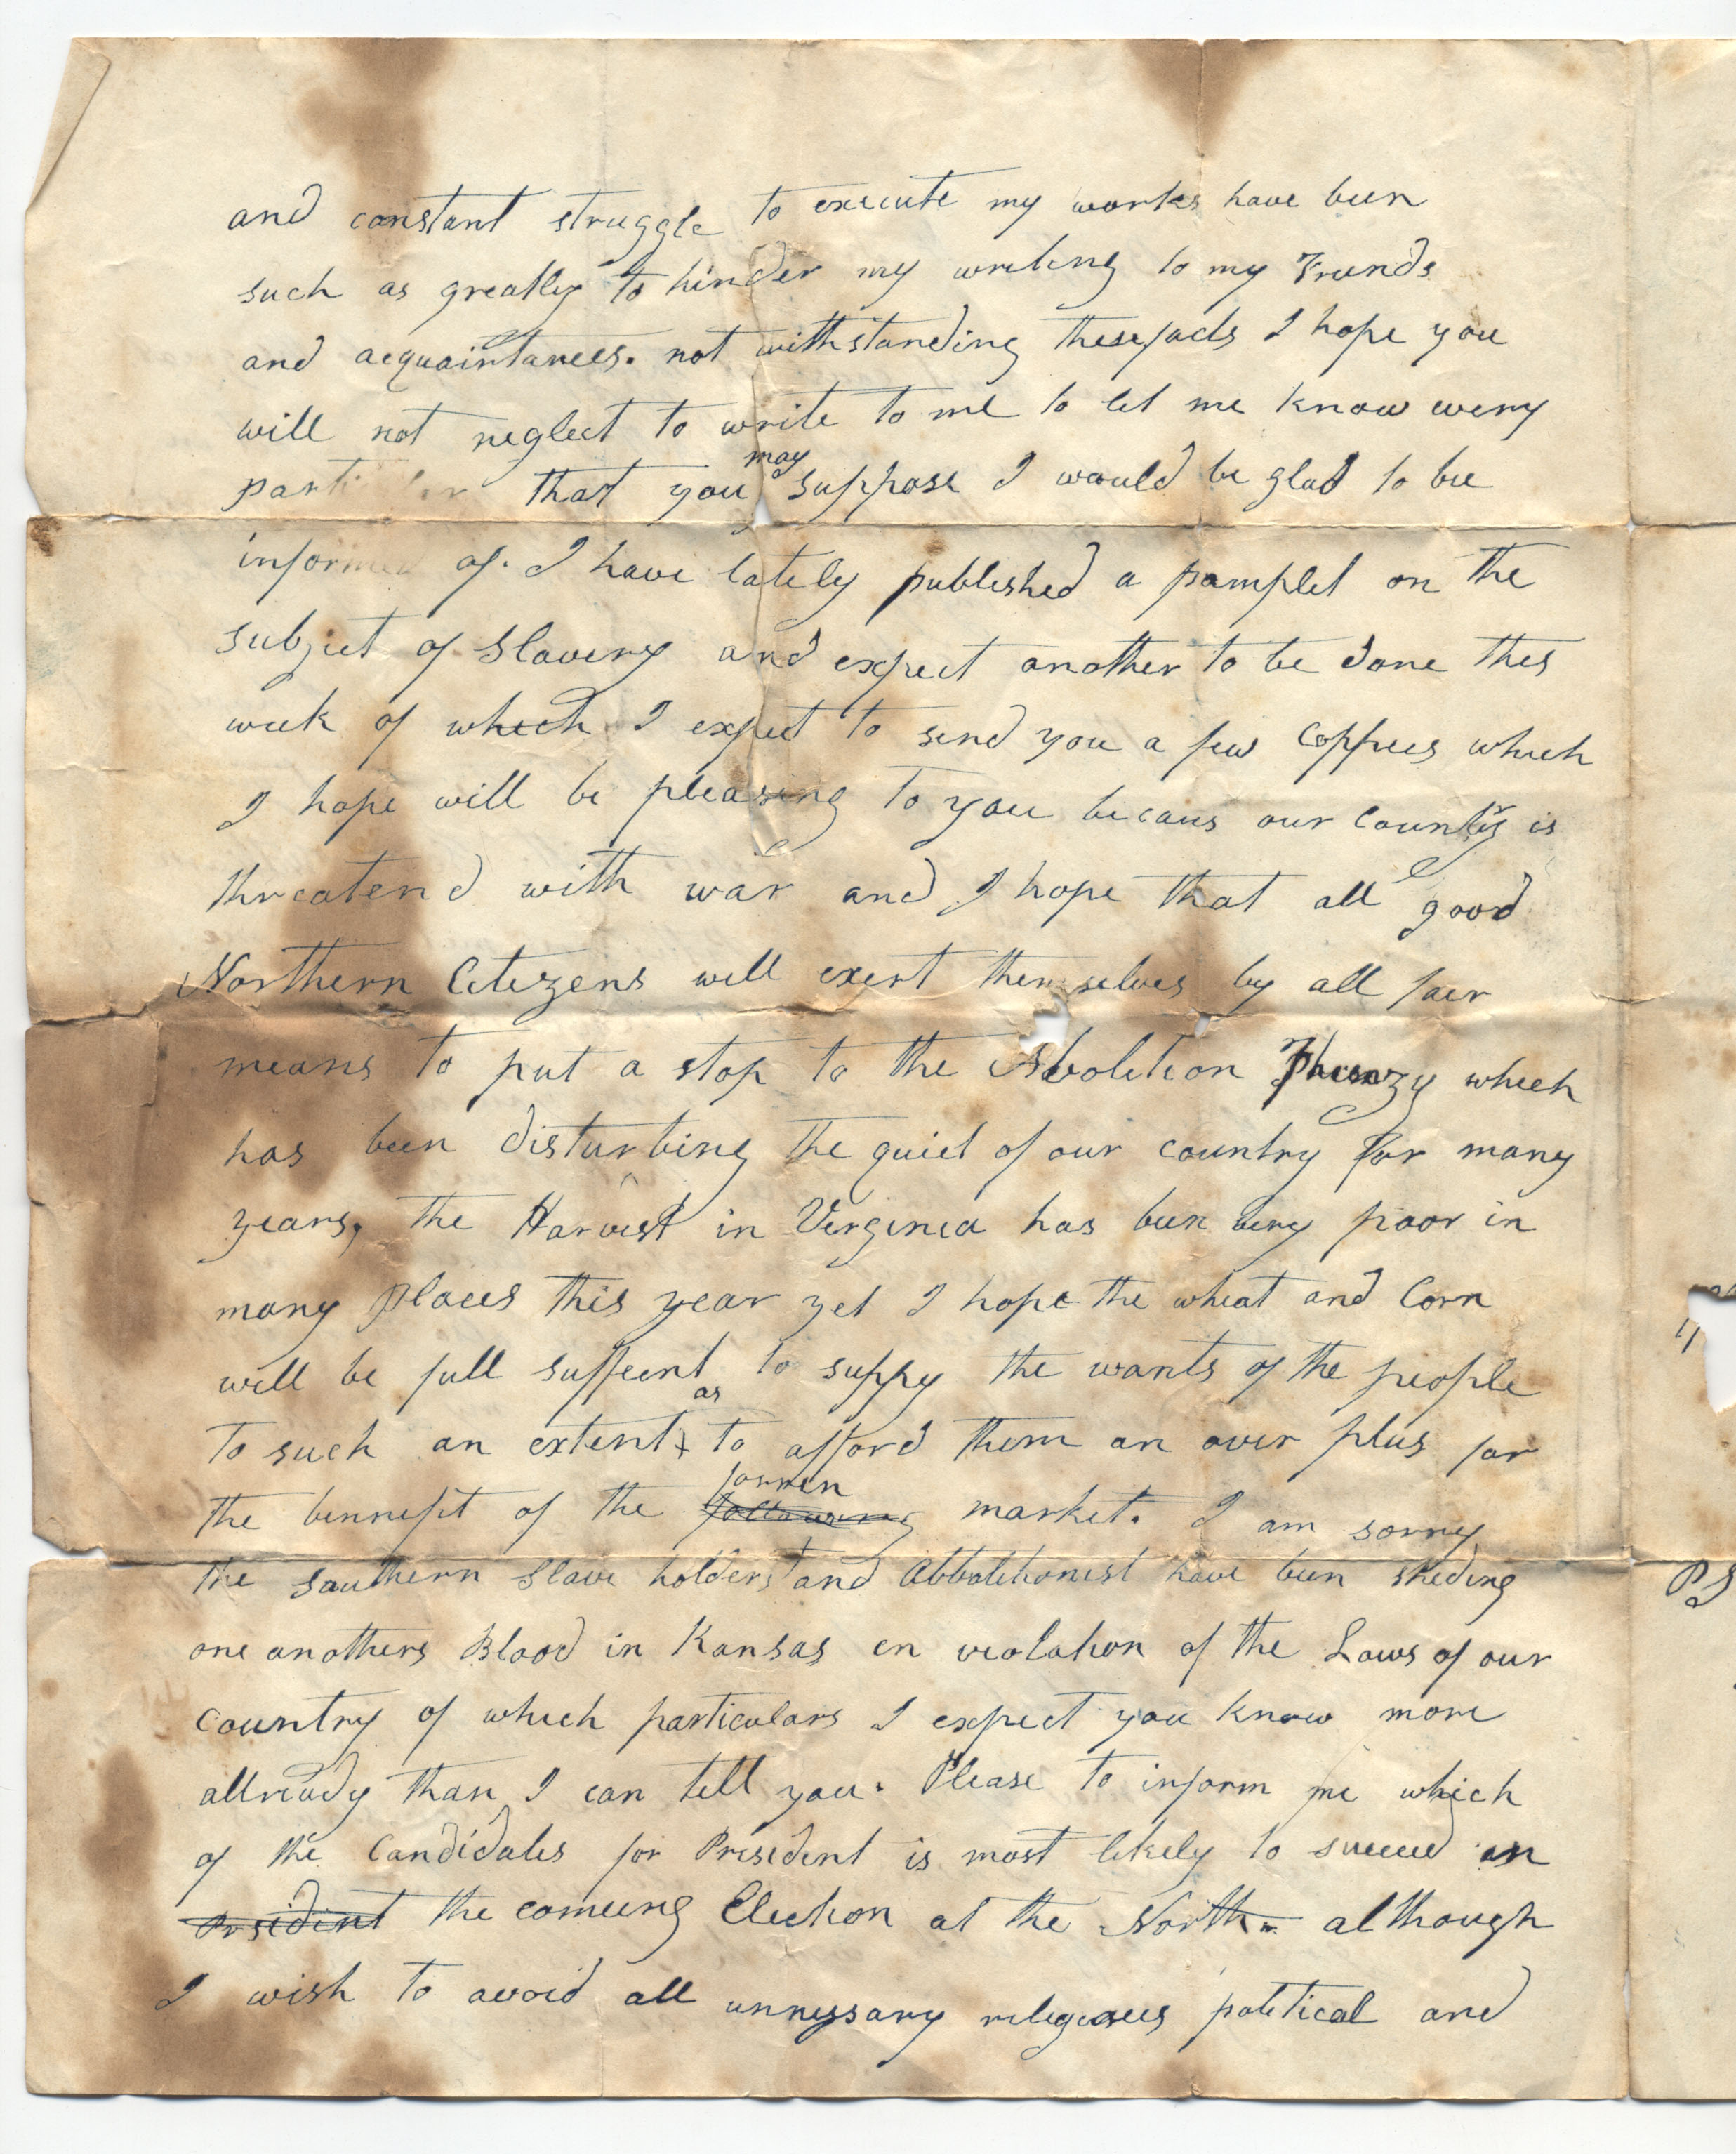 and constant struggle to execute my works have been
such as greatly to hinder my writeing to my Friends
and acquaintances. not withstanding these facts I hope you
will not neglect to write to me to let me know every
particular that you may suppose I would be glad to be
informed of. I have lately published a pamplet on the
subject of Slavery and expect another to be done this
week of which I expect to send you a few Coppies which
I hope will be pleasing to you becaus our Country is
threatend with war and I hope that all good
Northern Citizens will exert themselves by all fair
means to put a stop to the Abolition Phrenzy which
has been disturbing the quiet of our country for many
years, the Harvest in Virginia has been very poor in
many places this year yet I hope the wheat and Corn
will be full suffient to suppy the wants of the people
to such an extent as to afford them an over plus for
the bennefit of the following forren market. I am sorry
the southern Slave holders and Abbolitionist have been sheding
one anothers Blood in Kansas in violation of the Laws of our
country of which particulars I expect you know more
allready than I can tell you. Please to inform me which
of the Candidates for President is most likely to succeed in
President the comeing Election at the North - although
I wish to avoid all unnyssary religious political and
PS